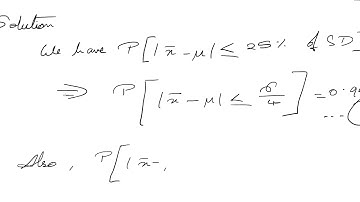 Solution
We have P[|x̄ - μ| ≤ 25% of SD]
⇒ P[|x̄ - μ| ≤ σ/4] = 0.9
....(
Also, P[|x̄ -,